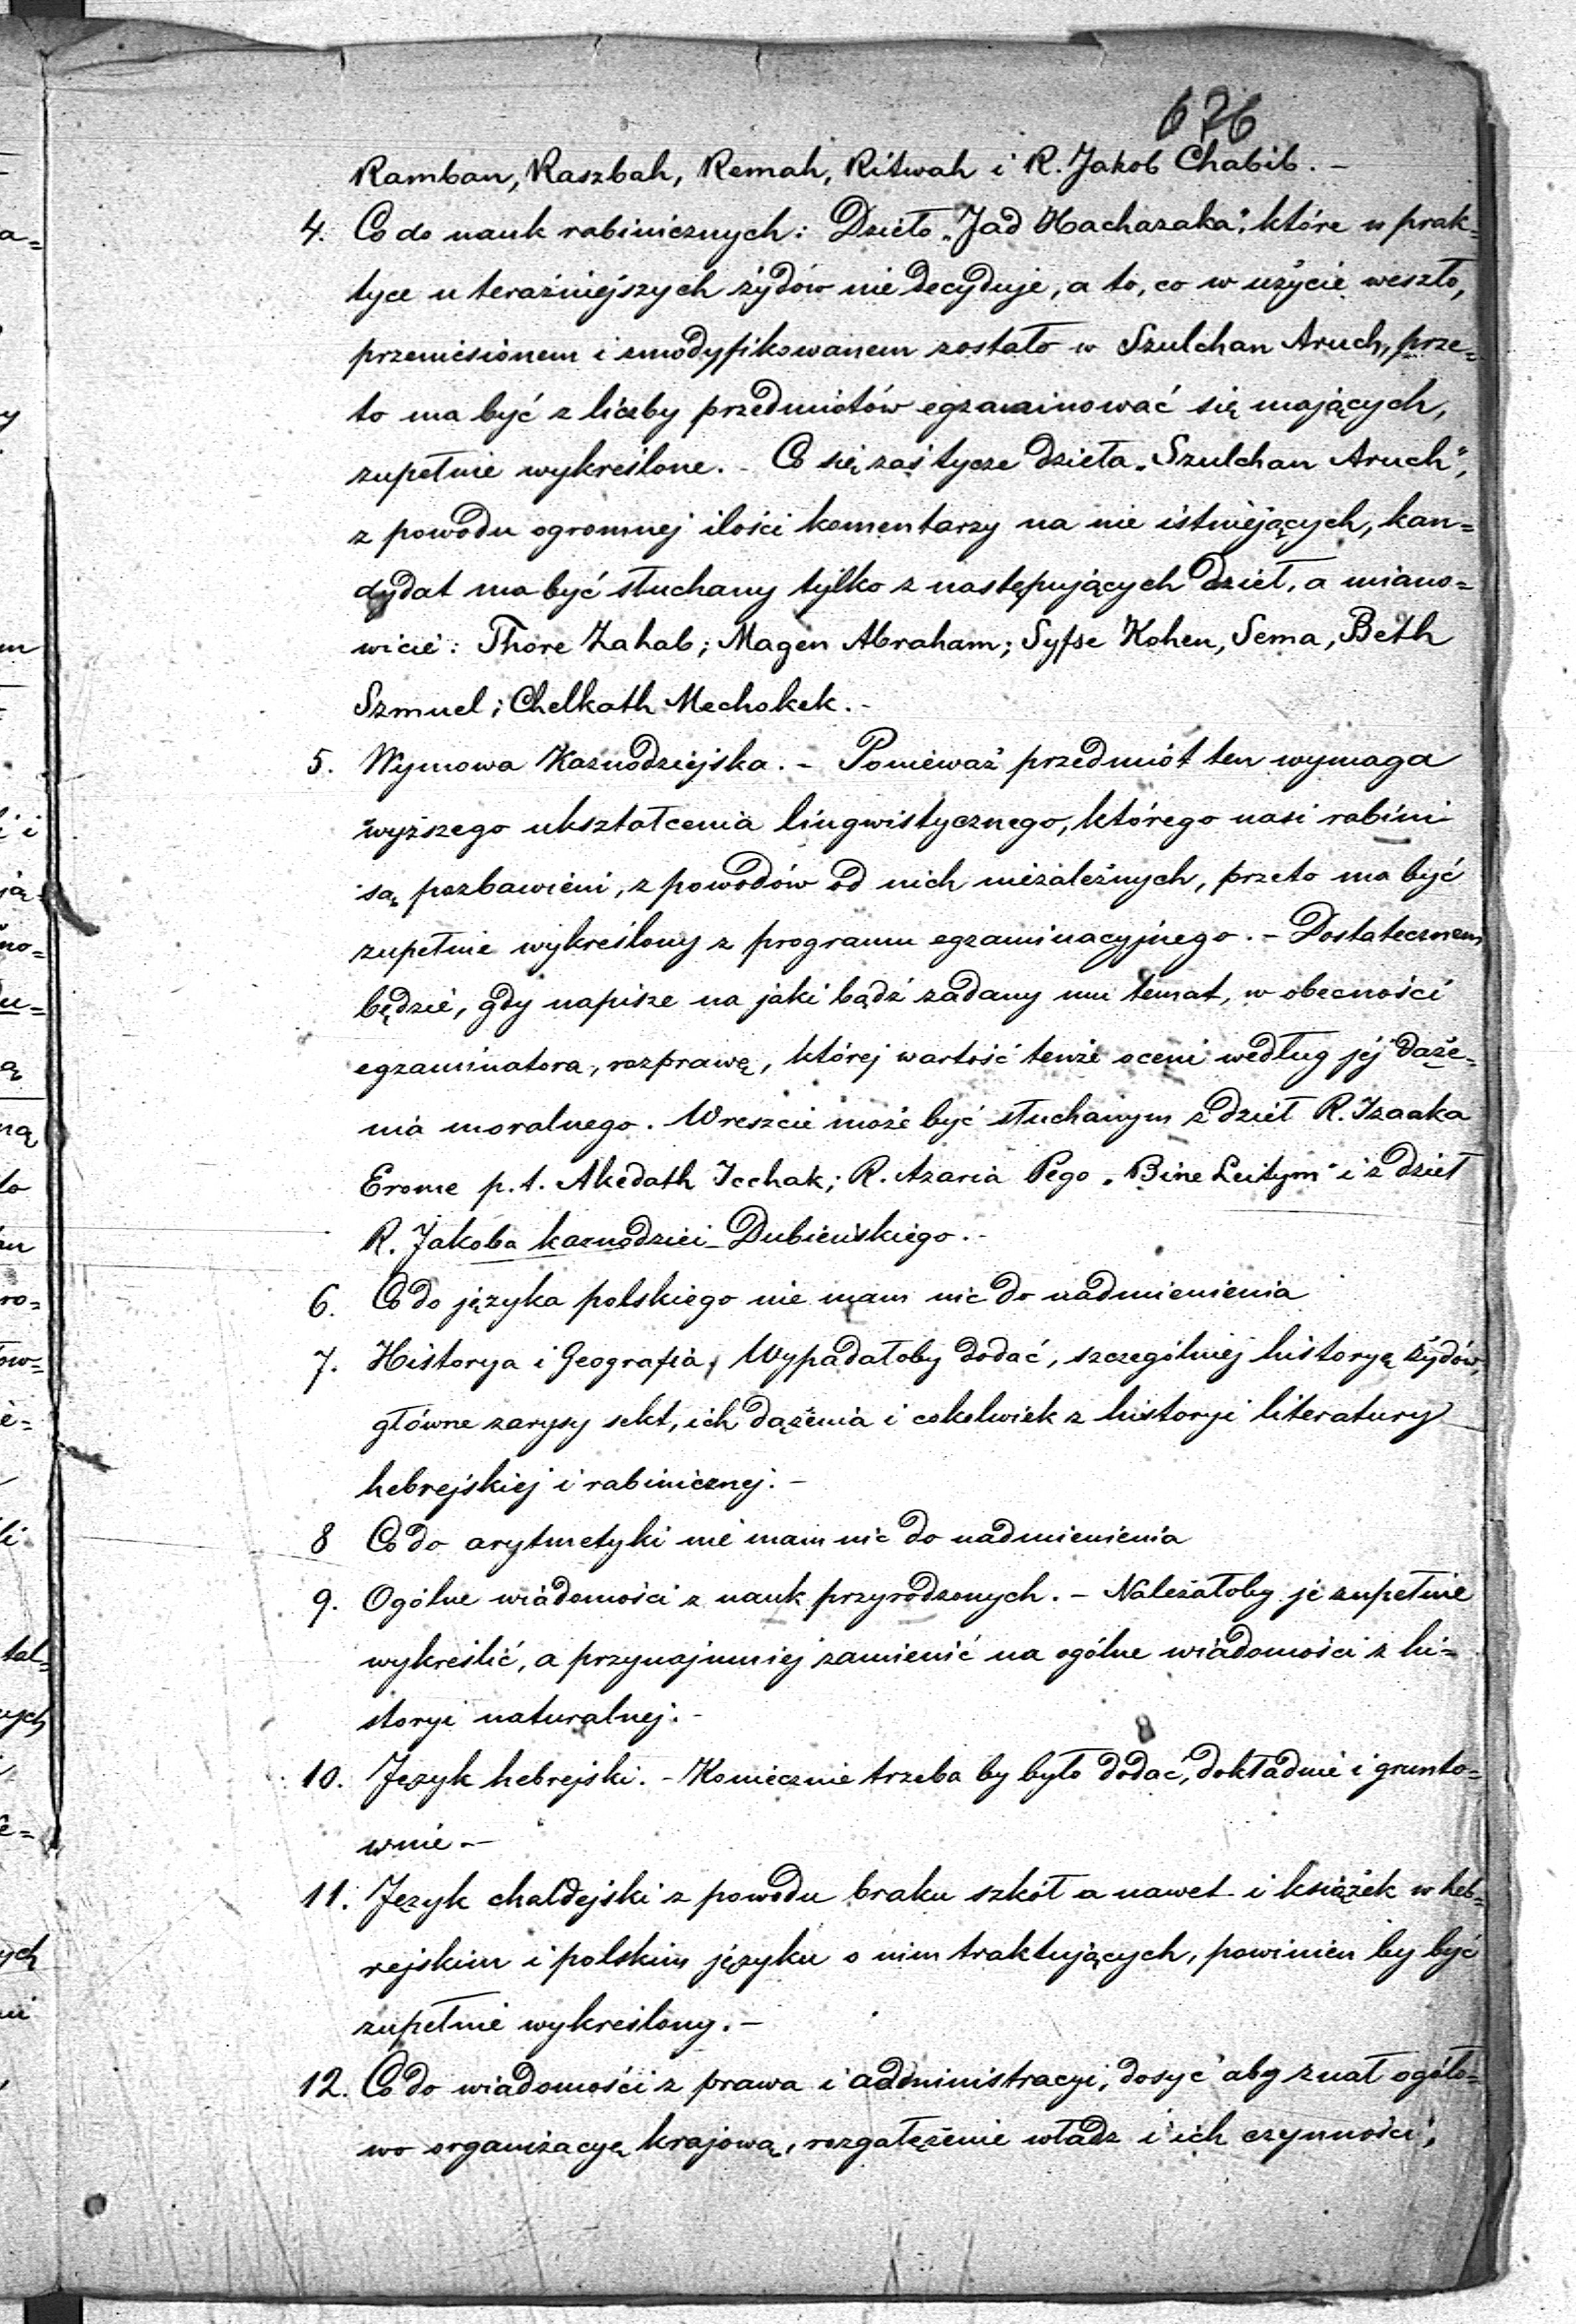 676
Ramban, Raszbah, Remah, Ritwah i R. Jakob Chabib. –
4. Co do nauk rabinicznych: Dzieło „Jad Hachazaka", które w prak=
tyce u teraźniejszych żydów nie decyduje, a to, co w użycie weszło,
przeniesionem i zmodyfikowanem zostało w Szulchan Aruch, prze=
to ma być z liczby przedmiotów egzaminować się mających,
zupełnie wykreślone. – Co się zaś tycze dzieła „Szulchan Aruch",
z powodu ogromnej ilości komentarzy na nie istniejących, kan=
dydat ma być słuchany tylko z następujących dzieł, a miano=
wicie: Thore Zahab; Magen Abraham; Syfse Kohen, Sema, Beth
Szmuel; Chelkath Mechokek. –
5. Wymowa Kaznodziejska. – Ponieważ przedmiot ten wymaga
wyższego ukształcenia lingwistycznego, którego nasi rabini
są pozbawieni, z powodów od nich niezależnych, przeto ma być
zupełnie wykreślony z programu egzaminacyjnego. – Dostatecznem
będzie, gdy napisze na jaki bądź zadany mu temat, w obecności
egzaminatora, rozprawę, której wartość tenże oceni według jéj dąże=
nia moralnego. Wreszcie może być słuchanym z dzieł R. Izaaka
Erome p. t. Akedath Icchak; R. Azaria Pego „Bine Leitym" i z dzieł
R. Jakoba kaznodziei Dubieńskiego. –
6. Co do języka polskiego nie mam nic do nadmienienia
7. Historya i Geografia, Wypadałoby dodać, szczególniej historyę żydów,
główne zarysy sekt, ich dążenia i cokolwiek z historyi literatury
hebrejskiej i rabinicznej. –
8 Co do arytmetyki nie mam nic do nadmienienia
9. Ogólne wiadomości z nauk przyrodzonych. – Należałoby je zupełnie
wykreślić, a przynajmniej zamienić na ogólne wiadomości z hi=
storyi naturalnej. –
10. Język hebrejski. – Koniecznie trzeba by było dodać, dokładnie i grunto=
wnie. –
11. Język chaldejski z powodu braku szkół a nawet i książek w heb=
rejskim i polskim języku o nim traktujących, powinien by być
zupełnie wykreślony. –
12. Co do wiadomości z prawa i administracyi, dosyć aby znał ogóło=
wo organizacyę krajową, rozgałęzienie władz i ich czynności,